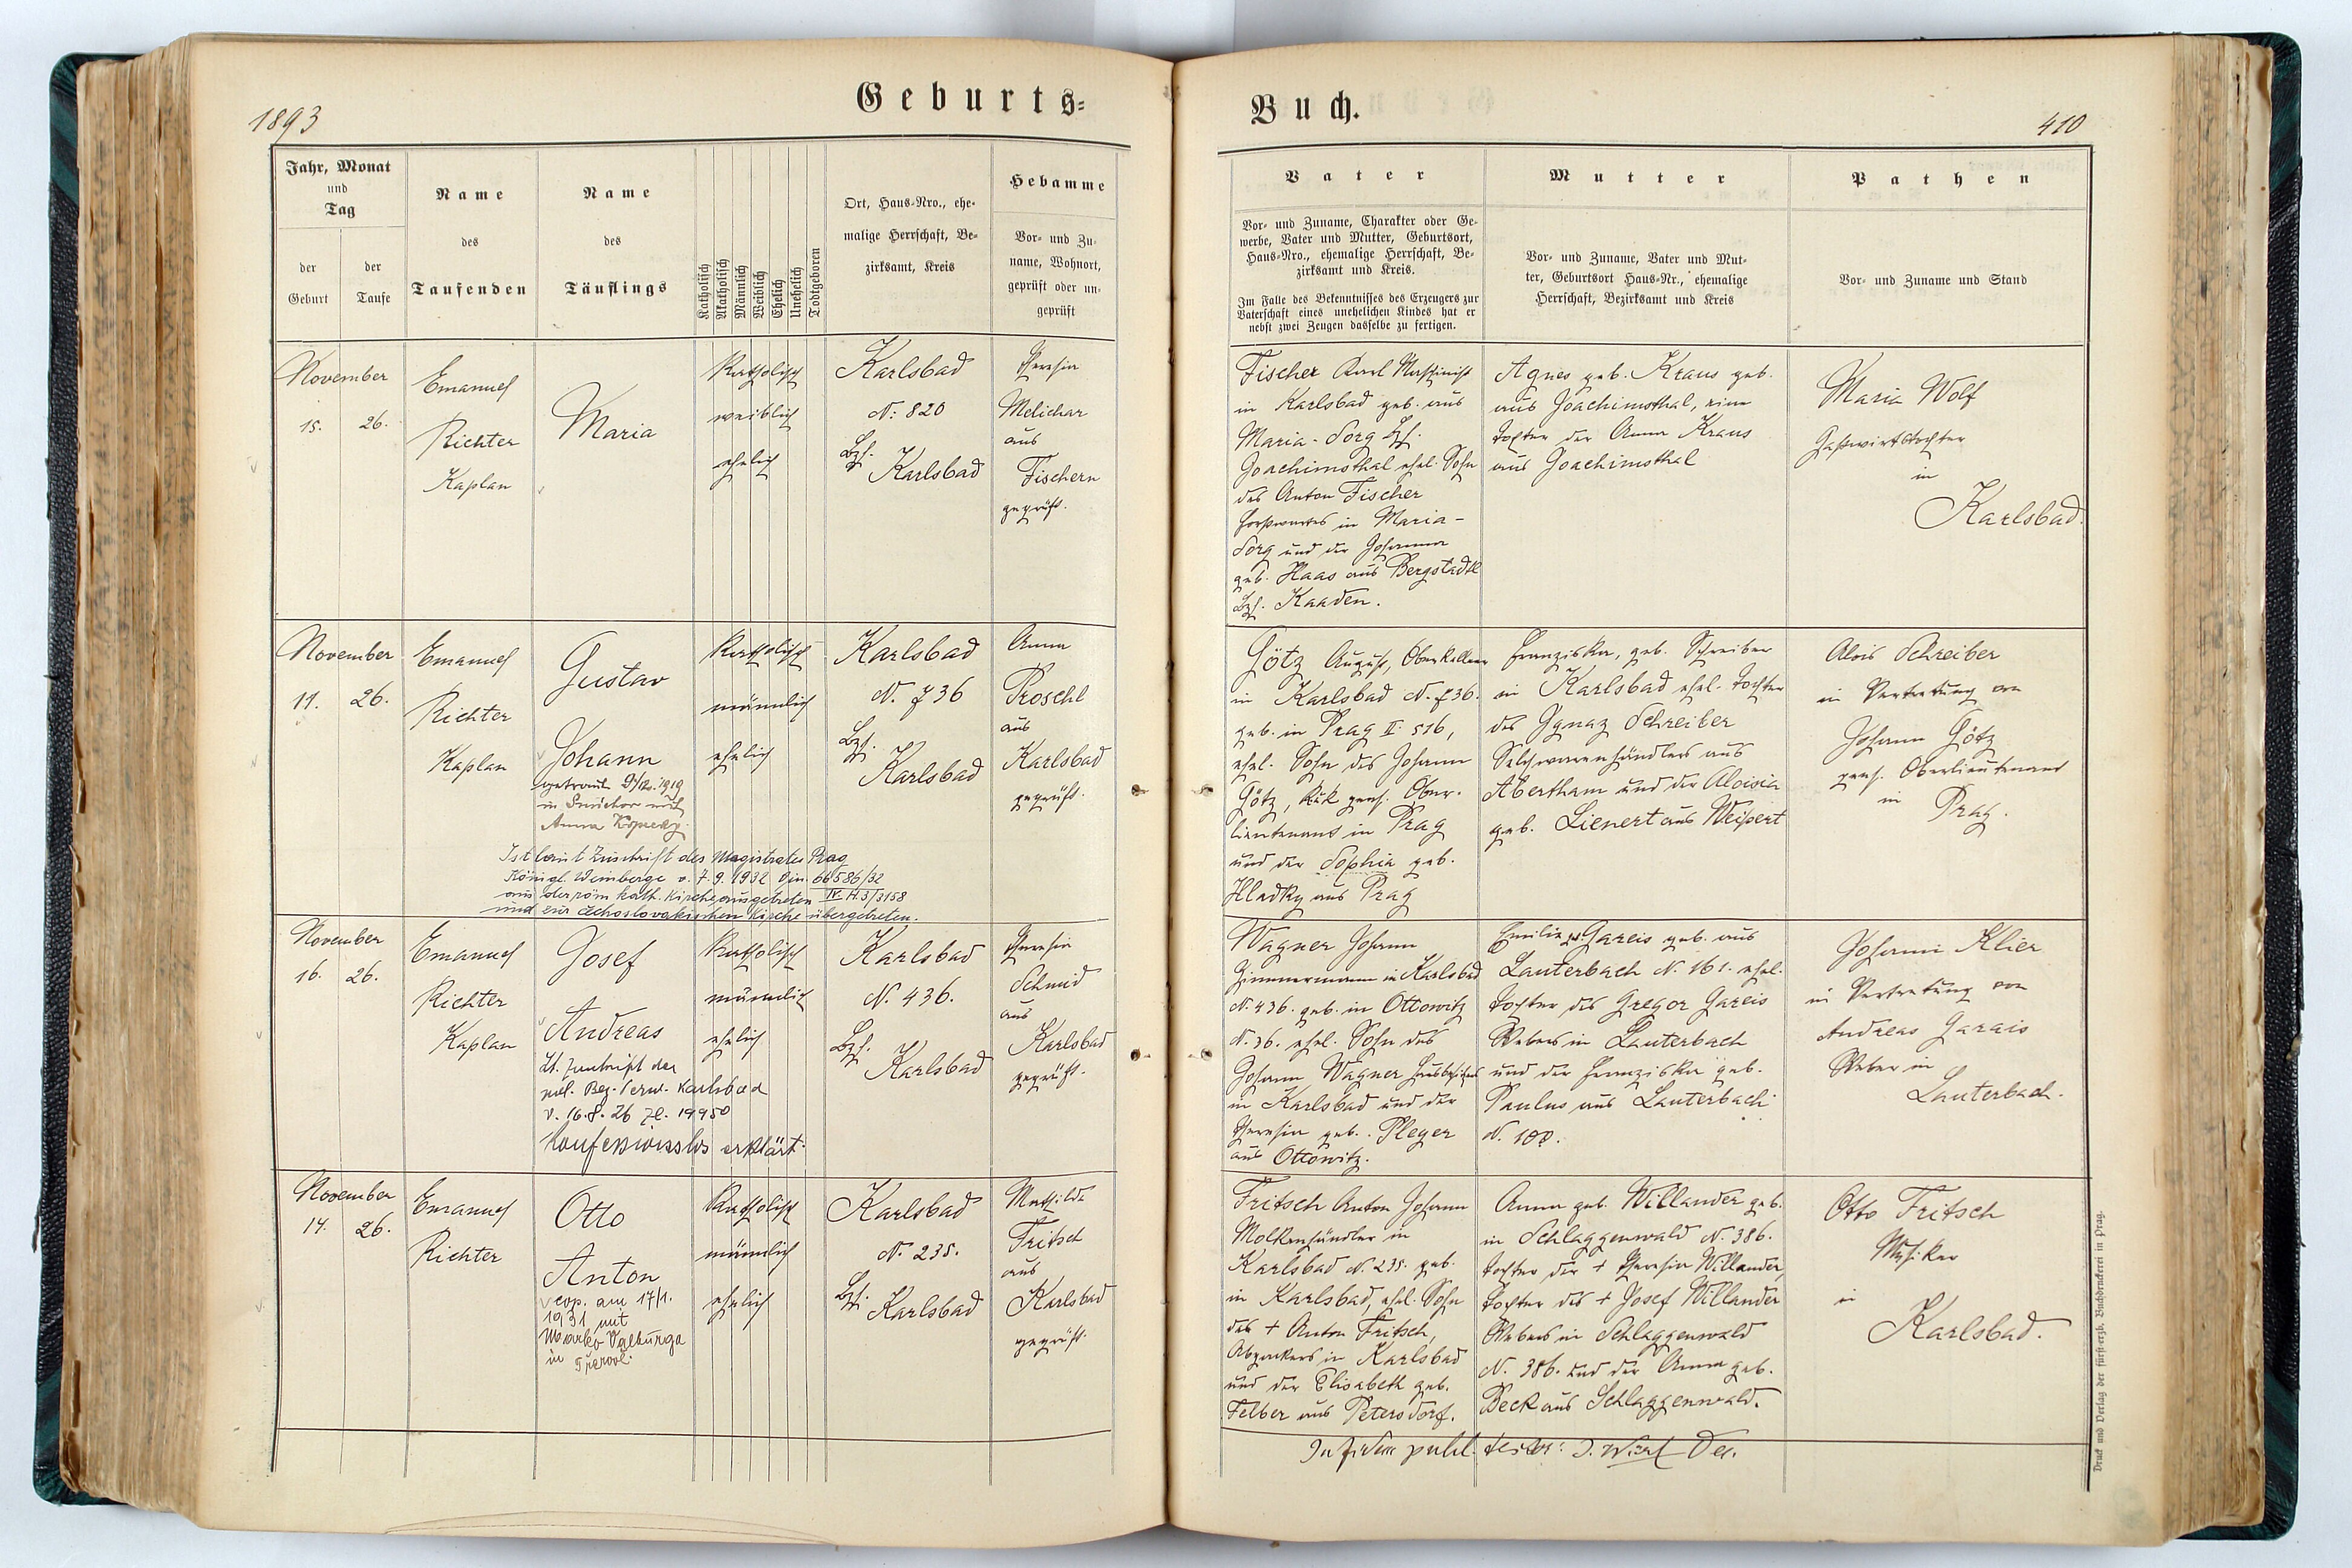 1893
Geburts-
Jahr, Monat
und
Tag
der
Geburt
der
Taufe
Name
des
Taufenden
Name
des
Täuflings
Katholisch
Akatholisch
Männlich
Weiblich
Ehelich
Unehelich
Todtgeboren
Ort, Haus-Nro., ehe-
malige Herrschaft, Be-
zirksamt, Kreis
Hebamme
Vor- und Zu-
name, Wohnort,
geprüft oder un-
geprüft
November
15. 26.
Emanuel
Richter
Kaplan
Maria
Katholisch
weiblich
ehelich
Karlsbad
N: 820
Bzh.
Karlsbad
Theresia
Melichar
aus
Fischern
geprüft.
November
11. 26.
Emanuel
Richter
Kaplan
Gustav
Johann
getraut 9/12. 1919
in Smichov mit
Anna
Katholisch
männlich
ehelich
Karlsbad
N. 736
Bzh.
Karlsbad
Anna
Proschl
aus
Karlsbad
geprüft.
Ist laut Zuschrift des Magistrates Prag
Königl. Weinberge v. 7. 9. 1932 Djn. 66586/32
IV H.3/3158
aus der röm. kath. Kirche ausgetreten
und zur čechoslovakischen Kirche übergetreten.
November
16. 26.
Emanuel
Richter
Kaplan
Josef
Andreas
Lt. Zuschrift der
pol. Bez. Verw. Karlsbad
v. 16.8. 26 Zl. 19950
konfessionslos erklärt.
Katholisch
männlich
ehelich
Karlsbad
N. 436.
Bzh.
Karlsbad
Theresia
Schmid
aus
Karlsbad
geprüft.
November
14. 26.
Emanuel
Richter
Otto
Anton
cop. am 17/1.
1931 mit
in
Katholisch
männlich
ehelich
Karlsbad
N. 235.
Bzh.
Karlsbad
Mathilde
Fritsch
aus
Karlsbad
geprüft.
Buch.
410
Vater
Vor- und Zuname, Charakter oder Ge-
werbe, Vater und Mutter, Geburtsort,
Haus-Nro., ehemalige Herrschaft, Be-
zirksamt und Kreis.
Im Falle des Bekenntnisses des Erzeugers zur
Vaterschaft eines unehelichen Kindes hat er
nebst zwei Zeugen dasselbe zu fertigen.
Mutter
Vor- und Zuname, Vater und Mut-
ter, Geburtsort Haus-Nr., ehemalige
Herrschaft, Bezirksamt und Kreis
Pathen
Vor- und Zuname und Stand
Fischer Karl Maschinist
in Karlsbad geb. aus
Maria-Sorg Bzh.
Joachimsthal ehel. Sohn
des Anton Fischer
Forstwartes in Maria-
Sorg und der Johanna
geb. Haas aus Bergstadtl
Bzh. Kaaden.
Agnes geb. Kraus geb.
aus Joachimsthal, eine
Tochter der Anna Kraus
aus Joachimsthal
Maria Wolf
Gastwirtstochter
in
Karlsbad.
Götz August, Oberkellner
in Karlsbad N. 736.
geb. in Prag II. 516,
ehel. Sohn des Johann
Götz, k.u.k. pens. Ober-
lieutenant in Prag
und der Sophia geb.
Hladky aus Prag
Franziska, geb. Schreiber
in Karlsbad ehel. Tochter
des Ignaz Schreiber
Selchwarenhändlers aus
Abertham und der Aloisia
geb. Lienert aus Weipert
Alois Schreiber
in Vertretung von
Johann Götz
pens. Oberlieutenant
in
Prag.
Wagner Johann
Zimmermann in Karlsbad
N. 436. geb. in Ottowitz
N. 36. ehel. Sohn des
Johann Wagner Hausbesitzers
in Karlsbad und der
Theresia geb. Pleyer
aus Ottowitz.
Emilie geb. Gareis geb. aus
Lauterbach N. 161. ehel.
Tochter des Gregor Gareis
Webers in Lauterbach
und der Franziska geb.
Paulus aus Lauterbach
N. 100.
Johann Klier
in Vertretung von
Andreas Gareis
Weber in
Lauterbach.
Fritsch Anton Johann
Molkenhändler in
Karlsbad N. 235. geb.
in Karlsbad, ehel. Sohn
des + Anton Fritsch,
in Karlsbad
und der Elisabeth geb.
Felber aus Petersdorf.
Anna geb. Willander geb.
in Schlaggenwald N. 386.
Tochter der + Theresia Willander,
Tochter des + Josef Willander
Webers in Schlaggenwald
N. 386. und der Anna geb.
Beck aus Schlaggenwald.
Otto Fritsch
Musiker
in
Karlsbad.
In fidem publ.
Druck und Verlag der fürst-erzb. Buchdruckerei in Prag.